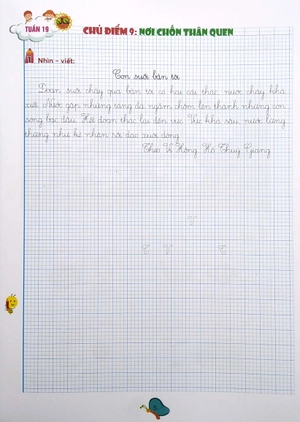 TUẦN 19
CHỦ ĐIỂM 9: NƠI CHỐN THÂN QUEN
Nhìn - viết:
Con suối bản tôi
Đoạn suối chảy qua bản tôi có hai cái thác, nước chảy khá
xiết. Nước gặp những tảng đá ngầm chồm lên thành những con
sóng bạc đầu. Hết đoạn thác lại đến vực. Vực khá sâu, nước lững
thững như kẻ nhàn rỗi dạo xuôi dòng.
Theo Vi Hồng, Hồ Thuỷ Giang